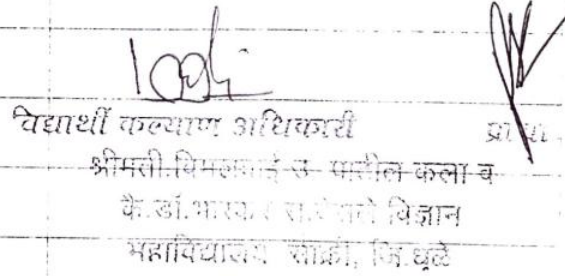 विद्यार्थी कल्याण अधिकारी
श्रीमती विमलबाई उ. पाटील कला व
कै.डॉ.भास्कर विज्ञान
महाविद्यालय साक्री, जि.धुळे